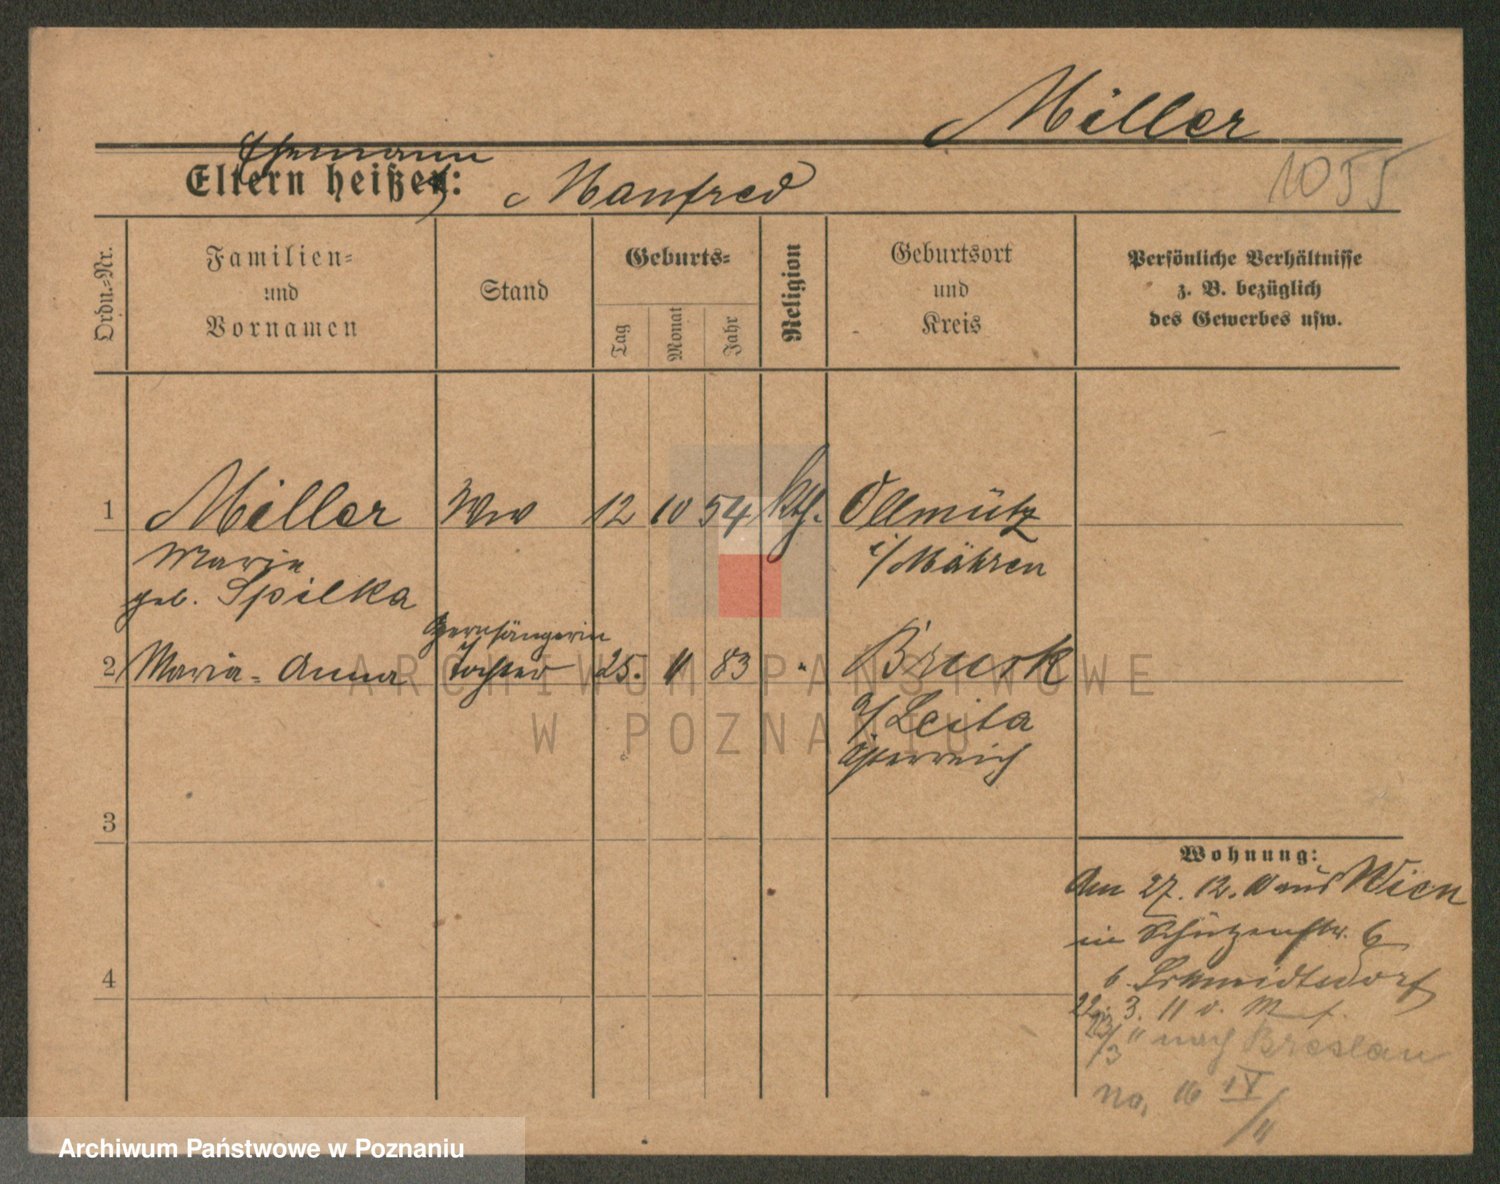 Miller
Ehemann
Eltern heißen: Manfred
1055
Ordn.-Nr.
Familien-
und
Vornamen
Stand
Geburts-
Tag
Monat
Jahr
Religion
Geburtsort
und
Kreis
Persönliche Verhältnisse
z. B. bezüglich
des Gewerbes usw.
1 Miller Ww 12 10 54 kth. Ollmütz
Marie i/Mähren
geb. Spilka
Opernsängerin
2 Maria-Anna Tochter 25. 11 83 " Bruck
a/Leita
Österreich
ARCHIWUM PAŃSTWOWE
W POZNANIU
3
4
Wohnung:
Am 27. 12. 10 aus Wien
in Schützenstr. 6
b. Schmidtsdorf
22. 3. 11 v.
23/3 " nach Breslau
no, 16 IV/11
Archiwum Państwowe w Poznaniu